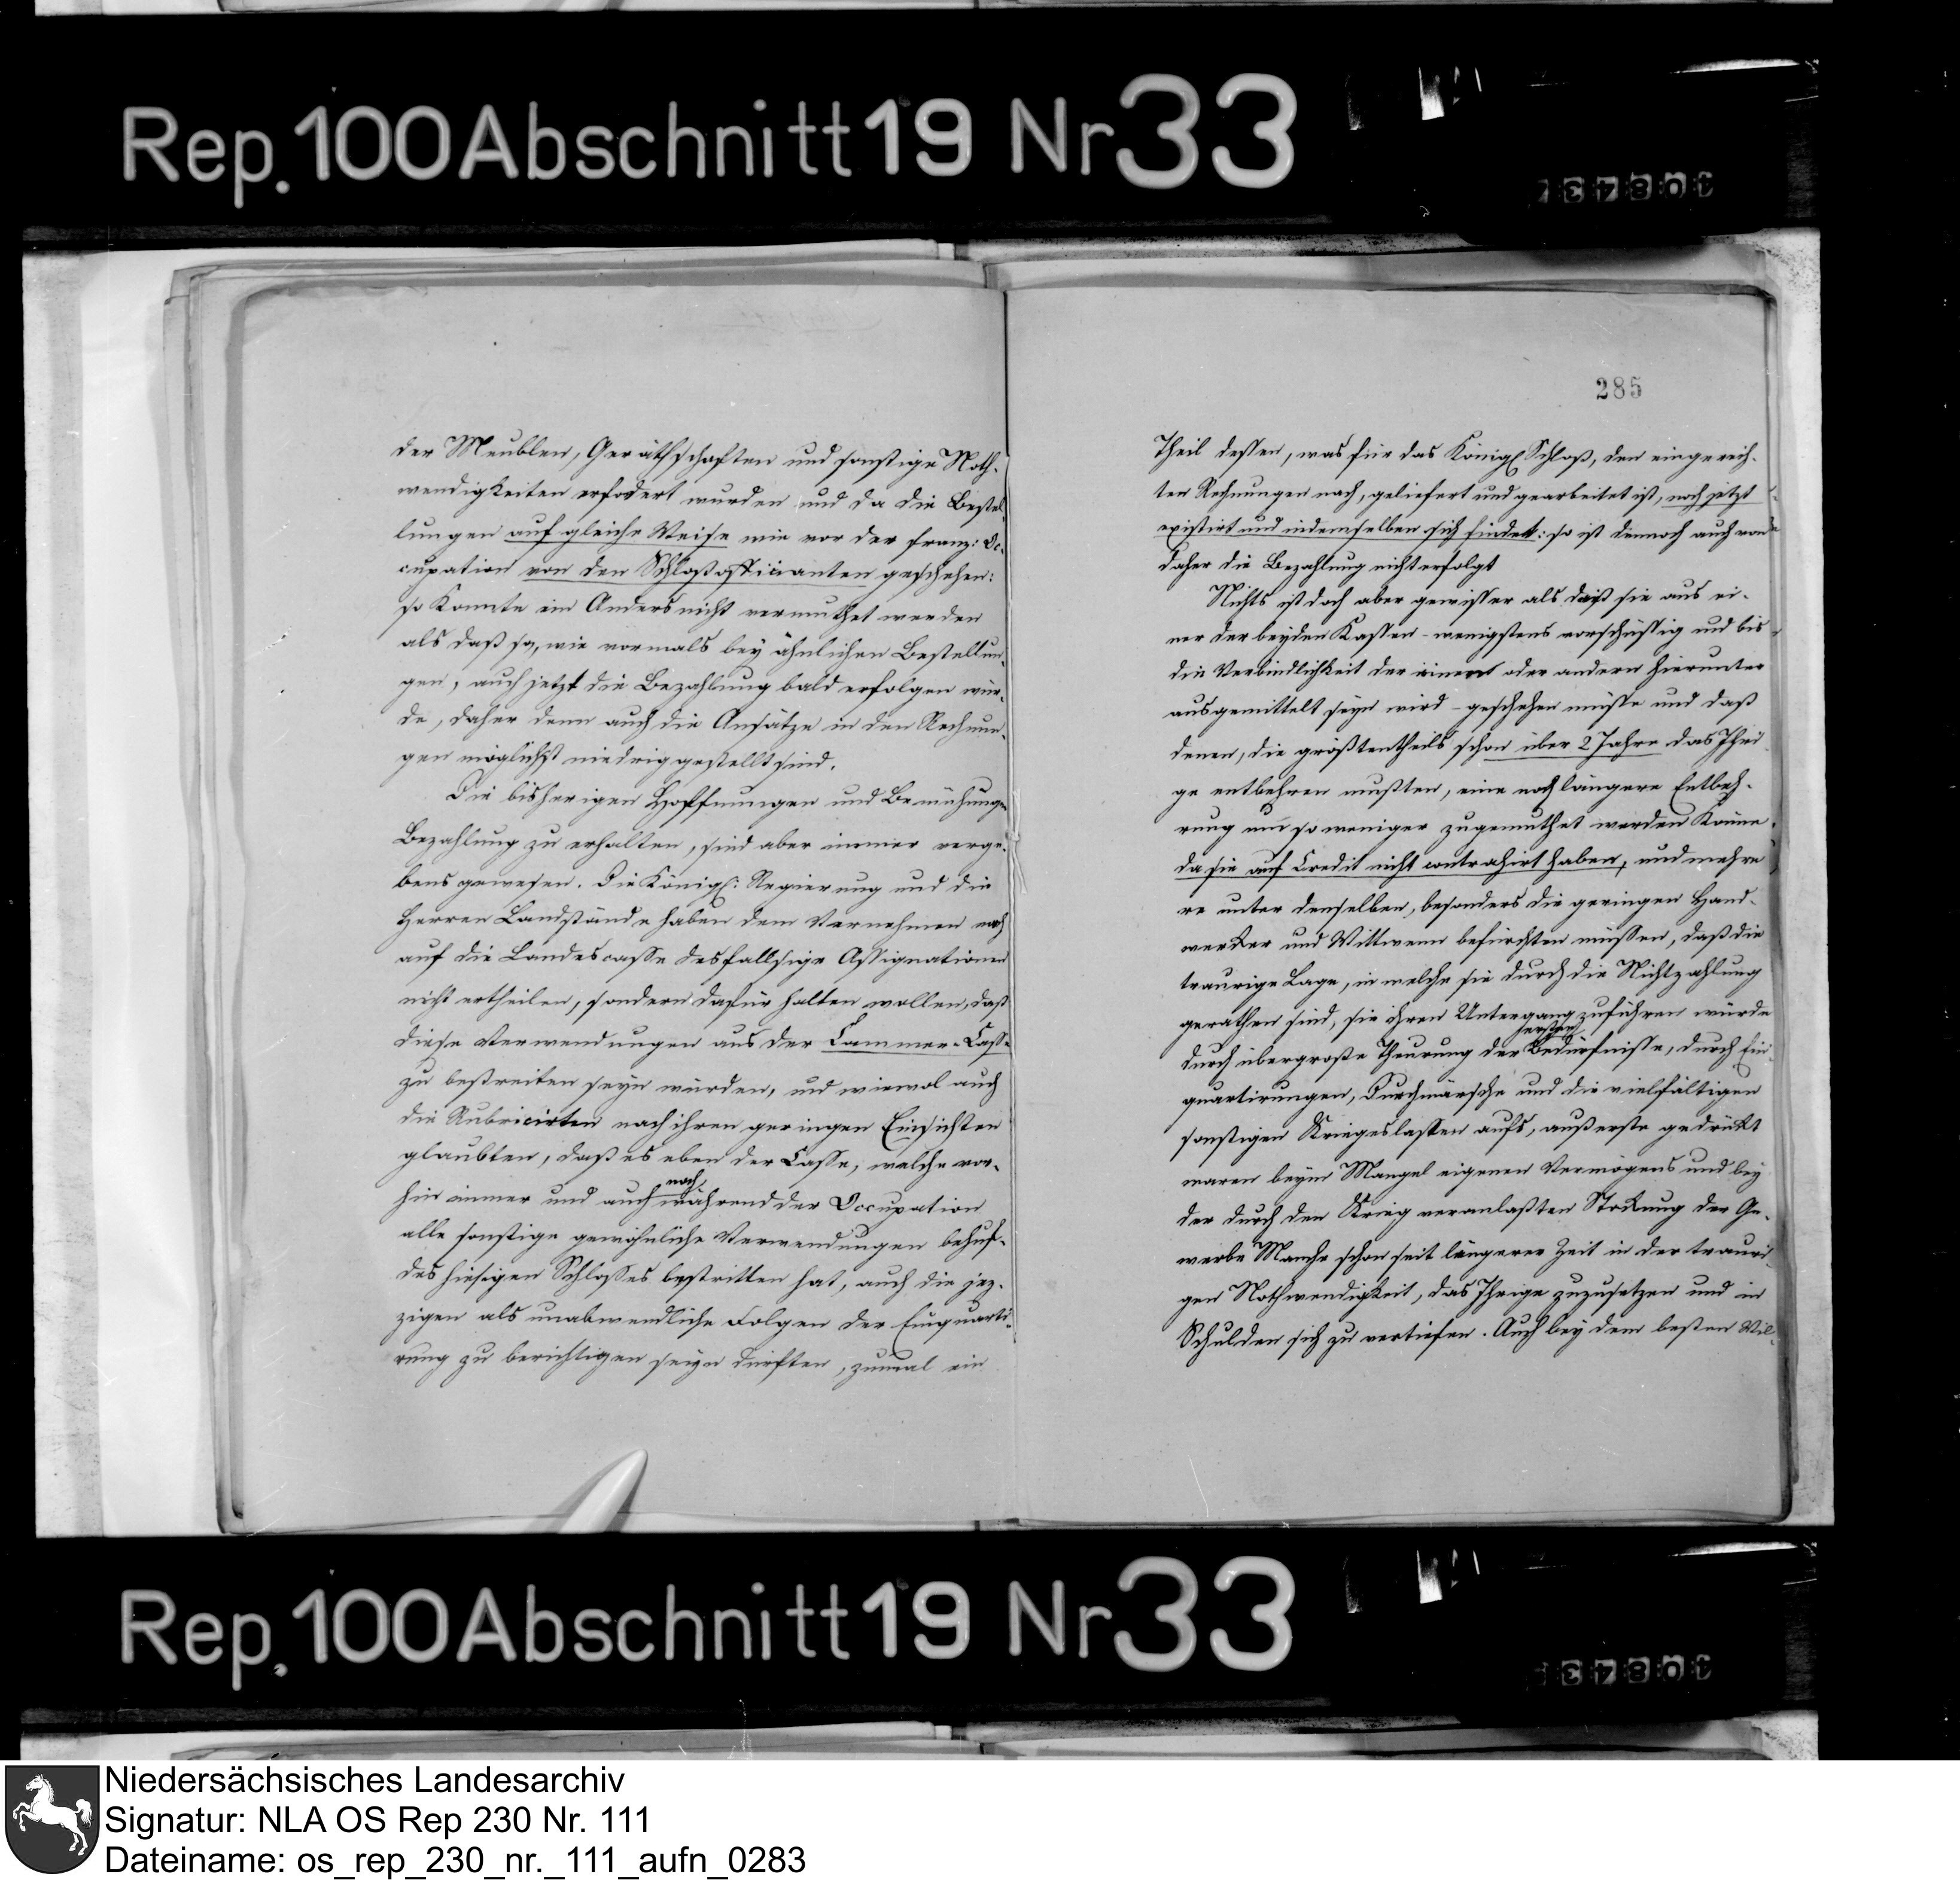 Rep. 100 Abschnitt 19 Nr 33
der Meublen, Geräthschaften und sonstige Noth-
wendigkeiten erfodert wurden und da die Bestel-
lungen auf gleiche Weise wie vor der franz: Oc-
cupation von den Schloßofficianten geschehen:
so konnte ein Anders nicht vermuthet werden
als daß so, wie vormals bey ähnlichen Bestellun-
gen, auch jetzt die Bezahlung bald erfolgen wür-
de, daher denn auch die Ansätze in den Rechnun-
gen möglichst niedrig gestellt sind.
Die bisherigen Hoffnungen und Bemühungen
Bezahlung zu erhalten, sind aber immer verge-
bens gewesen. Die Königl: Regierung und die
Herren Landstände haben dem Vernehmen nach
auf die Landescasse desfallsige Assignationen
nicht ertheilen, sondern dafür halten wollen, daß
diese Verwendungen aus der Cammer-Casse
zu bestreiten seyn würden, und wiewol auch
die Rubricirten nach ihren geringen Einsichten
glaubten, daß es eben der Casse, welche vor-
hin immer und auch noch während der Occupation
alle sonstige gewöhnliche Verwendungen behuf-
des hiesigen Schlosses bestritten hat, auch die jez-
zigen als unabwendliche Folgen der Einquarti-
rung zu berichtigen seyn dürften, zumal ein
285
Theil dessen, was für das Königl Schloß, den eingereich-
ten Rechnungen nach, geliefert und gearbeitet ist, noch jetzt
existirt und in demselben sich findet: so ist dennoch auch von
daher die Bezahlung nicht erfolgt
Nichts ist doch aber gewisser als daß sie aus ei-
ner der beyden Kassen - wenigstens vorschüssig und bis
die Verbindlichkeit der einen oder andern hierunter
ausgemittelt seyn wird - geschehen müsse und daß
denen, die größtentheils schon über 2 Jahre das Ihri
ge entbehren mußten, eine noch längere Entbeh-
rung um so weniger zugemuthet werden könne
da sie auf Credit nicht contrahirt haben, und mehre
re unter denselben, besonders die geringen Hand-
werker und Wittwen befürchten müssen, daß die
traurige Lage, in welche sie durch die Nichtzahlung
gerathen sind, sie ihren Untergang zuführen würde
durch übergroße Theurung der Bedürfnisse, durch Ein-
quartirungen, Durchmärsche und die vielfältigen
sonstigen Kriegeslasten aufs, äußerste gedrükt
waren beym Mangel eigenen Vermögens und bey
der durch den Krieg veranlaßten Stokung der Ge-
werbe Manche schon seit längerer Zeit in der trauri-
gen Nothwendigkeit, das Ihrige zuzusetzen und in
Schulden sich zu vertiefen. Auch bey dem besten Wil-
Rep. 100 Abschnitt 19 Nr 33
Niedersächsisches Landesarchiv
Signatur: NLA OS Rep 230 Nr. 111
Dateiname: os_rep_230_nr._111_aufn_0283